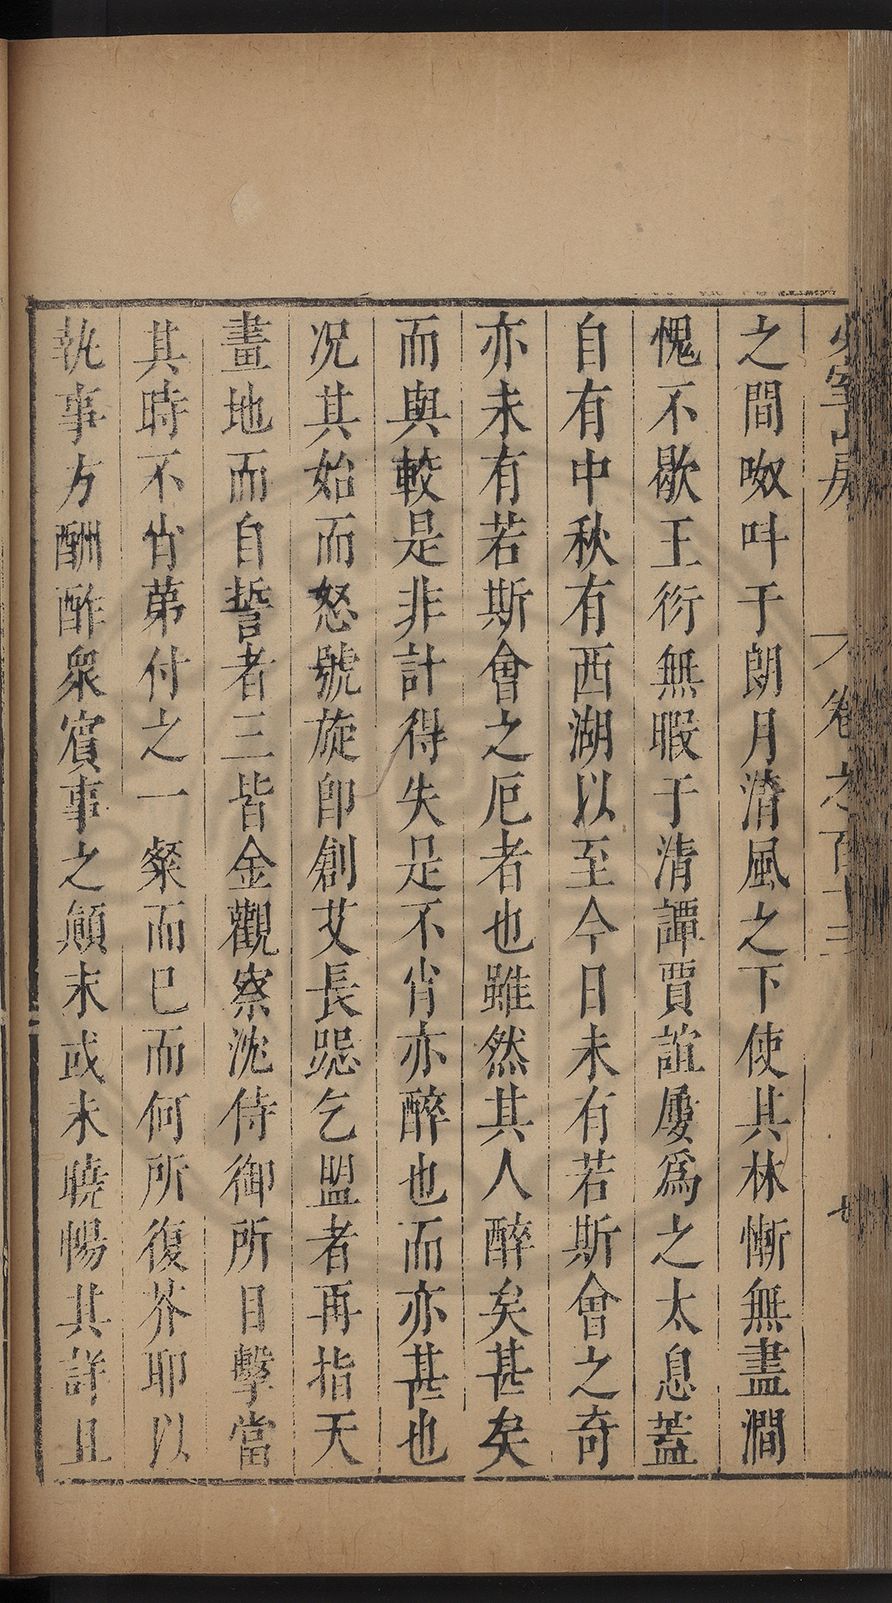 少室山房 卷之百十三 七
之間呶呌于朗月淸風之下使其林慚無盡澗
愧不歇王衍無暇于清譚賈誼屢爲之太息蓋
自有中秋有西湖以至今日未有若斯會之奇
亦未有若斯會之厄者也雖然其人醉矣甚矣
而與較是非計得失是不肖亦醉也而亦甚也
况其始而怒號旋卽創艾長跽乞盟者再指天
畫地而自誓者三皆金觀察沈侍御所目擊當
其時不肖苐付之一粲而巳而何所復芥耶以
執事方酬酢衆賓事之顛末或未曉暢其詳且